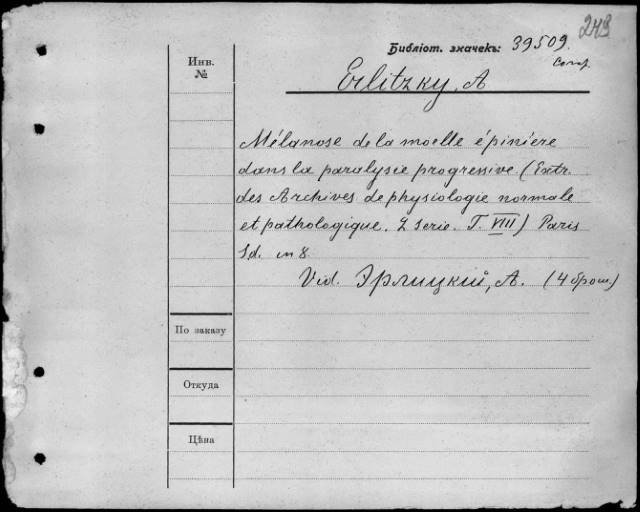 243
Библіот. значекъ: 39509.
Инв.
№
Erlitzky, A
Mélanose de la moelle épiniere
dans la paralysie progressive (Extr.
des Archives de physiologie normale
et pathologique. 2 serie. T. VIII) Paris
Sd. in 8.
Vid. Эрлицкий, А. (4 брош.)
По заказу
Откуда
Цѣна